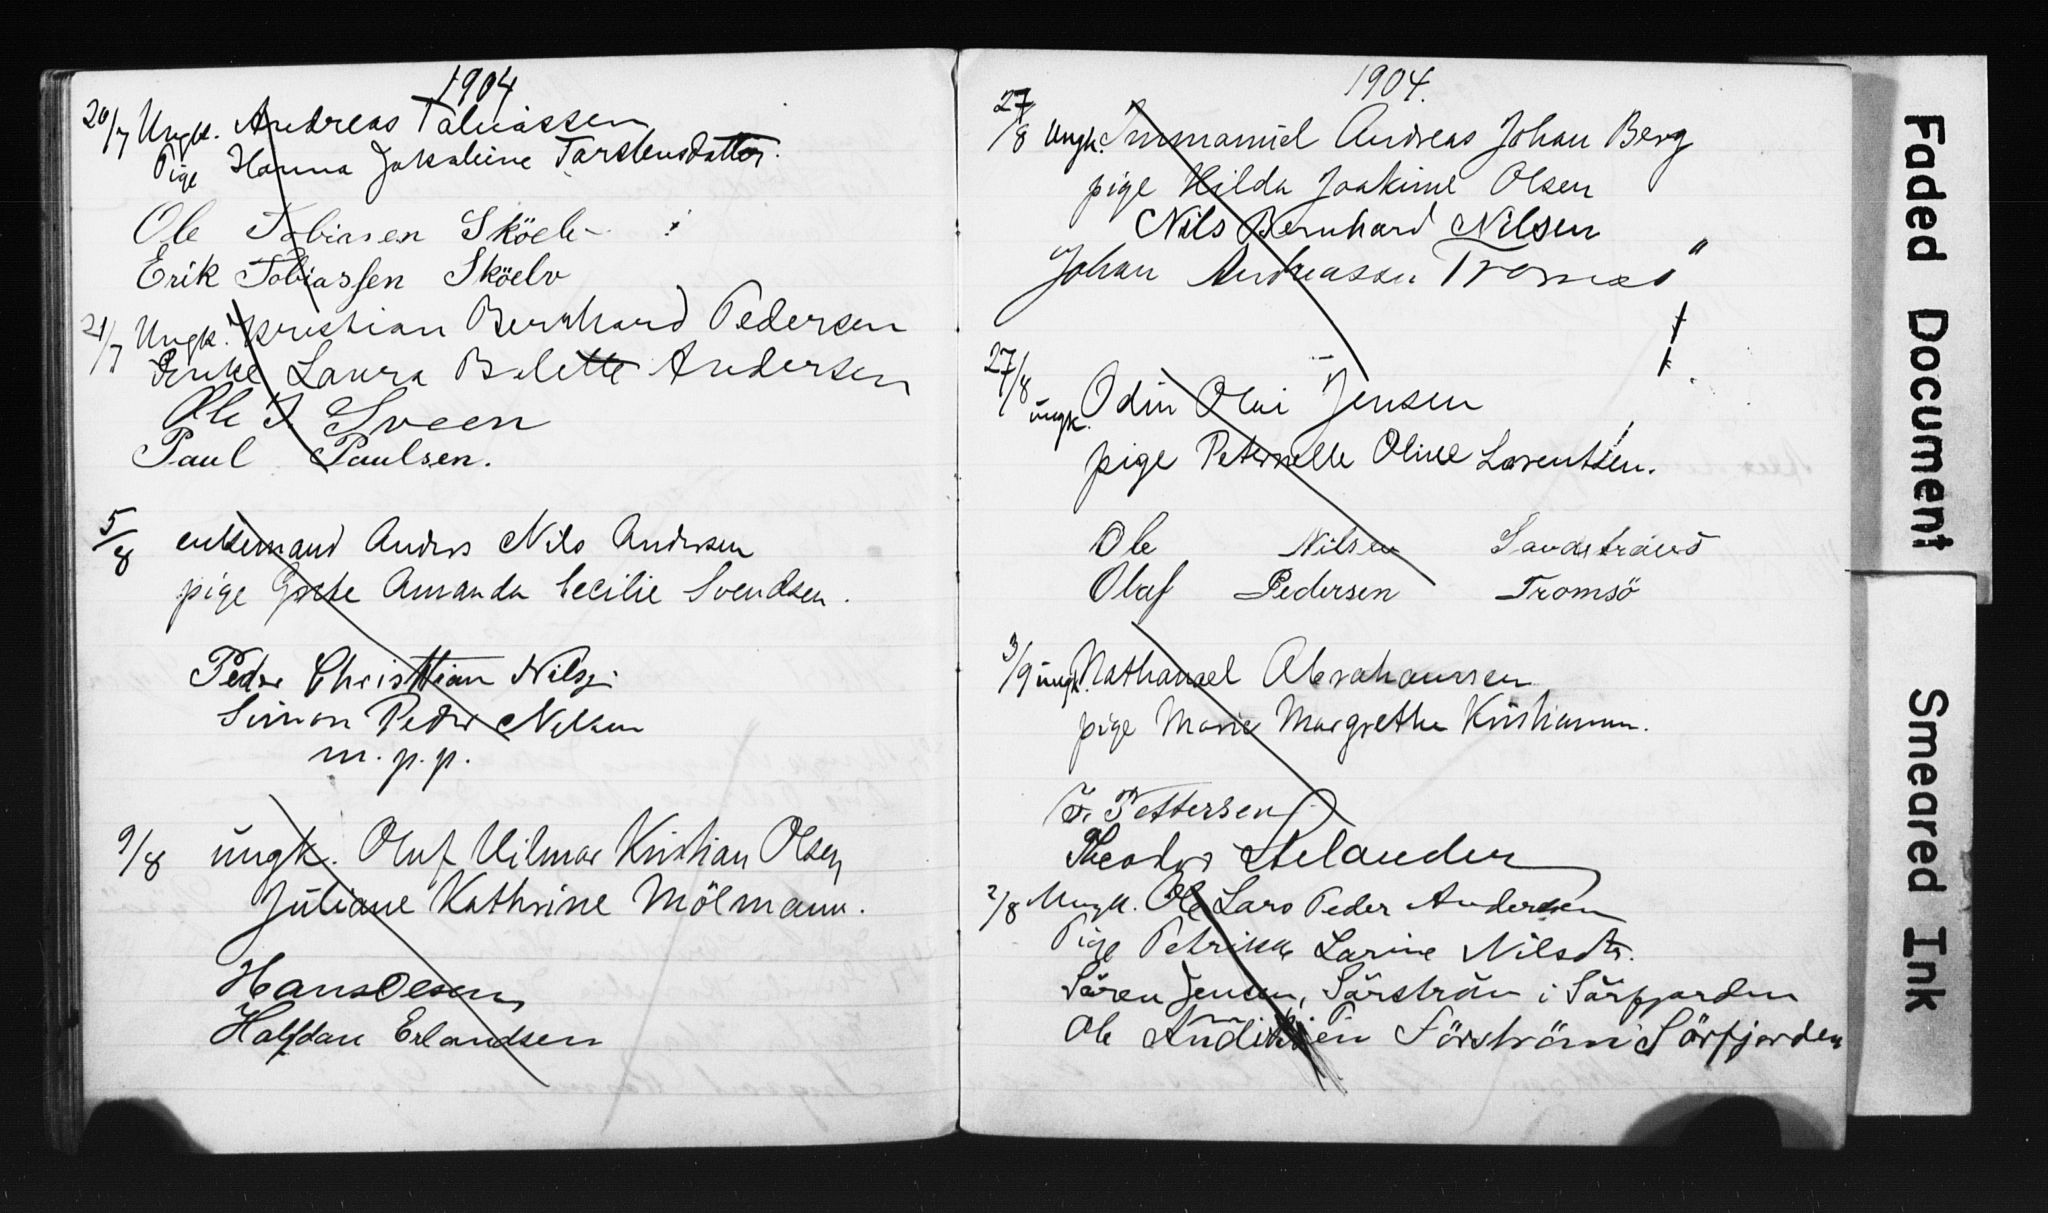 1904
20/7 Ungk. Andreas Tobiassen
Pige Hanna Jakobine Torstensdatter.
Ole Tobiasen Sköelv
Erik Tobiassen Sköelv
21/7 Ungk. Kristian Bernhard Pedersen
Enke Laura Bolette Andersen
Ole J. Sveen
Paul Paulsen.
5/8 enkemand Anders Nils Andersen
pige Grete Amanda Cecilie Svendsen.
Peder Christtian Nils
Simon Peder Nilsen
m. p. p.
9/8 ungk. Oluf Vilmar Kristian Olsen
Juliane Kathrine Mölmann.
Hans Olsen
Halfdan Erlandsen
1904.
27/8 Ungk. Immanuel Andreas Johan Berg
pige Hilda Joakime Olsen
Nils Bernhard Nilsen
Johan Andreassen Tromsö
27/8 ungk. Odin Olai Jensen
pige Peternelle Oline Lorentsen.
Ole Nilsen
Olaf Pedersen Tromsö
3/9 ungk. Nathanael Abrahamsen
pige Marie Margrethe Kristiansen.
Pettersen
Theodor Helander
2/8 Ungk. Ole Lars Peder Andersen
Pige Petrikke Larine Nilsdtr.
Sören Jensen, Sörström i Sörfjorden
Ole Sörström i Sörfjorden
Faded Document
Smeared Ink